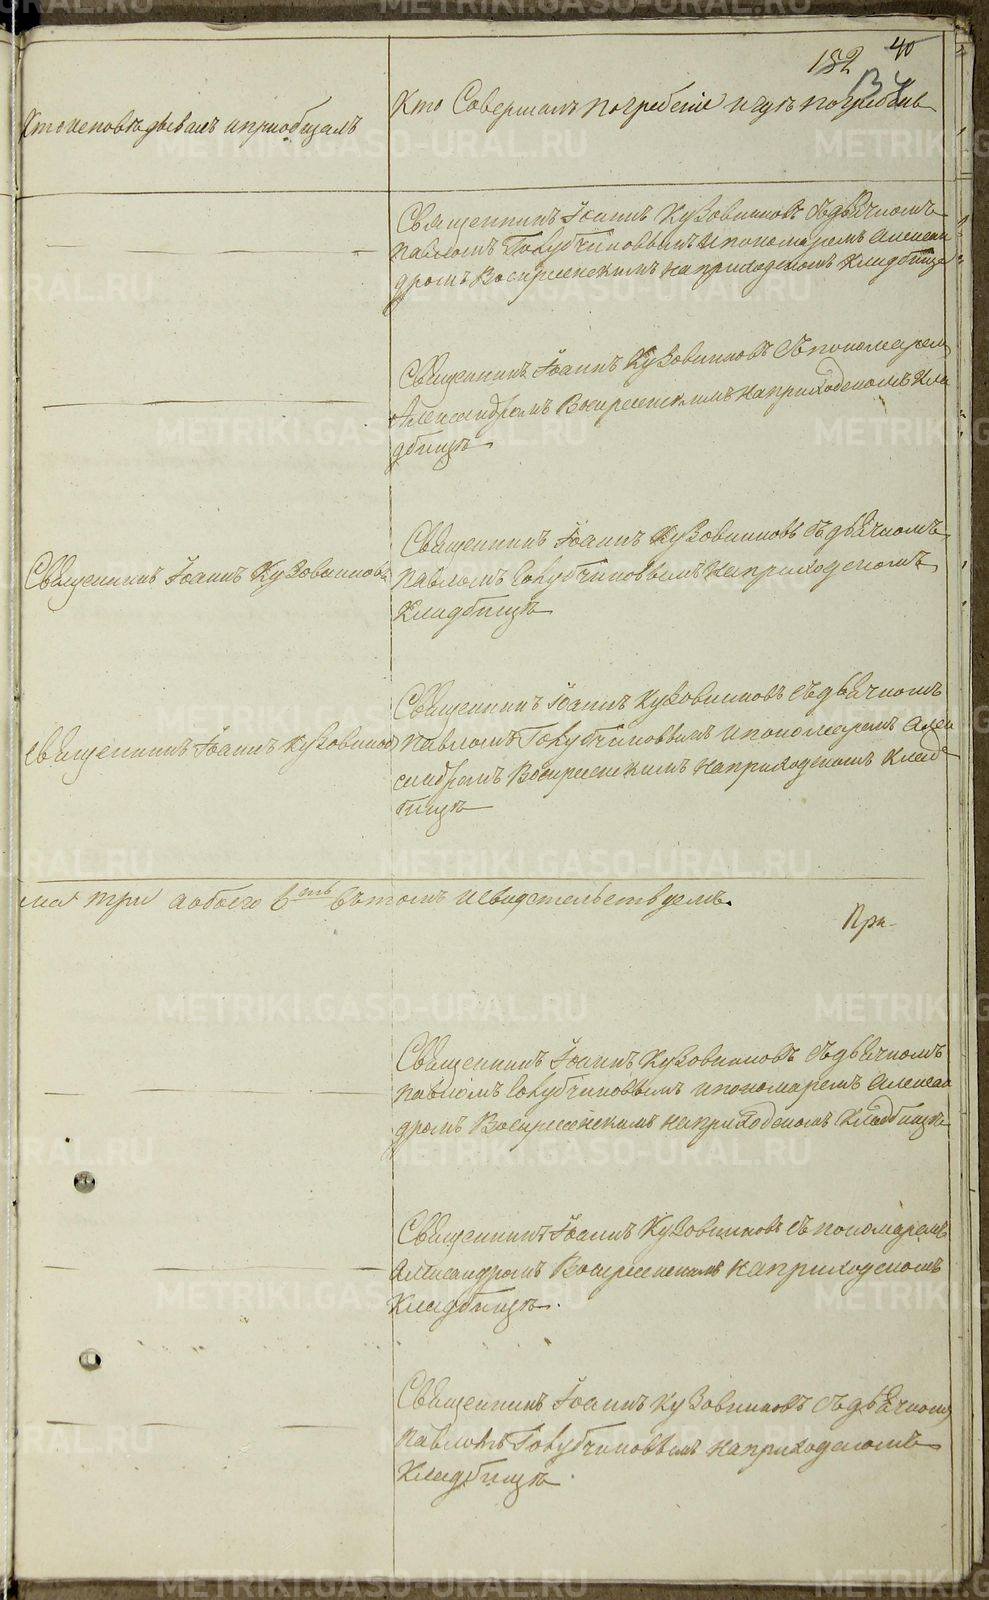 182 40
134
Кто исповѣдывалъ и приобщалъ
Кто Совершалъ погребеніе и гдѣ погребены
Священникъ Іоаннъ Кузовниковъ съ дьячкомъ
Павломъ Голубчиковымъ и пономаремъ Алексан
дромъ Воскресенскимъ на приходскомъ Кладбище
Священникъ Іоаннъ Кузовниковъ съ пономарем
Александромъ Воскресенскимъ на приходскомъ Кла
дбищѣ
Священникъ Іоаннъ Кузовниковъ
Священникъ Іоаннъ Кузовниковъ съ дьячкомъ
Павломъ Голубчиковымъ на приходскомъ
Кладбищѣ
Священникъ Іоаннъ Кузовников
Священникъ Іоаннъ Кузовниковъ съ дьячкомъ
Павломъ Голубчиковымъ и пономаремъ Алек
сандромъ Воскресенскимъ на приходскомъ Клад
бищѣ
три а обоего 6ть въ томъ и свидетельствуемъ.
При-
Священникъ Іоаннъ Кузовниковъ съ дьячкомъ
Павломъ Голубчиковымъ и пономаремъ Алексан
дромъ Воскресенскимъ на приходскомъ Кладбищѣ
Священникъ Іоаннъ Кузовниковъ съ пономаремъ
Александромъ Воскресенскимъ на приходскомъ
Кладбищѣ.
Священникъ Іоаннъ Кузовниковъ съ дьячкомъ
Павломъ Голубчиковымъ на приходскомъ
Кладбищѣ.
METRIKI.GASO-URAL.RU